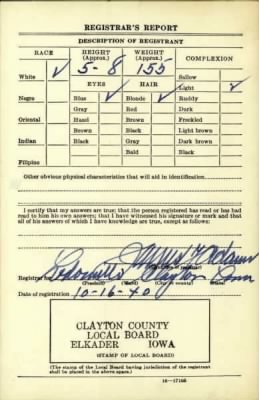 REGISTRAR'S REPORT
DESCRIPTION OF REGISTRANT
RACE HEIGHT (Approx.) WEIGHT (Approx.) COMPLEXION
5-8 155
White ✓ EYES HAIR Sallow
Light ✓
Negro Blue ✓ Blonde ✓ Ruddy
Gray Red Dark
Oriental Hazel Brown Freckled
Brown Black Light brown
Indian Black Gray Dark brown
Bald Black
Filipino
Other obvious physical characteristics that will aid in identification
I certify that my answers are true; that the person registered has read or has had
read to him his own answers; that I have witnessed his signature or mark and that
all of his answers of which I have knowledge are true, except as follows:
Adams
Registrar for Clayton
(Precinct) (Ward) (City or county) (State)
Date of registration 10-16-40
CLAYTON COUNTY
LOCAL BOARD
ELKADER IOWA
(STAMP OF LOCAL BOARD)
(The stamp of the Local Board having jurisdiction of the registrant
shall be placed in the above space.)
16-17105